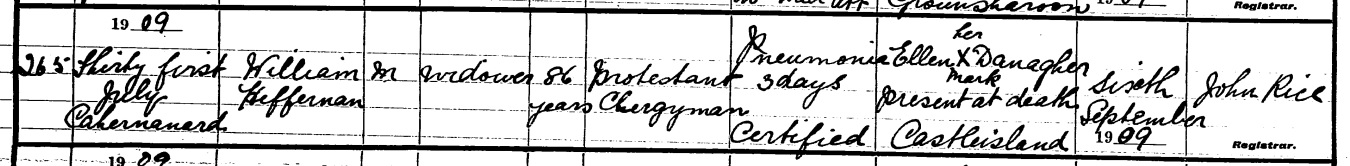 19 09
265 Thirty first July Cahernanard William Heffernan M Widower 86 years Protestant Chergyman Pneumonia 3 days Certified Ellen X Danagher her mark present at death Castleisland Sixth September 19 09 John Rice
Registrar.
Registrar.
19 09